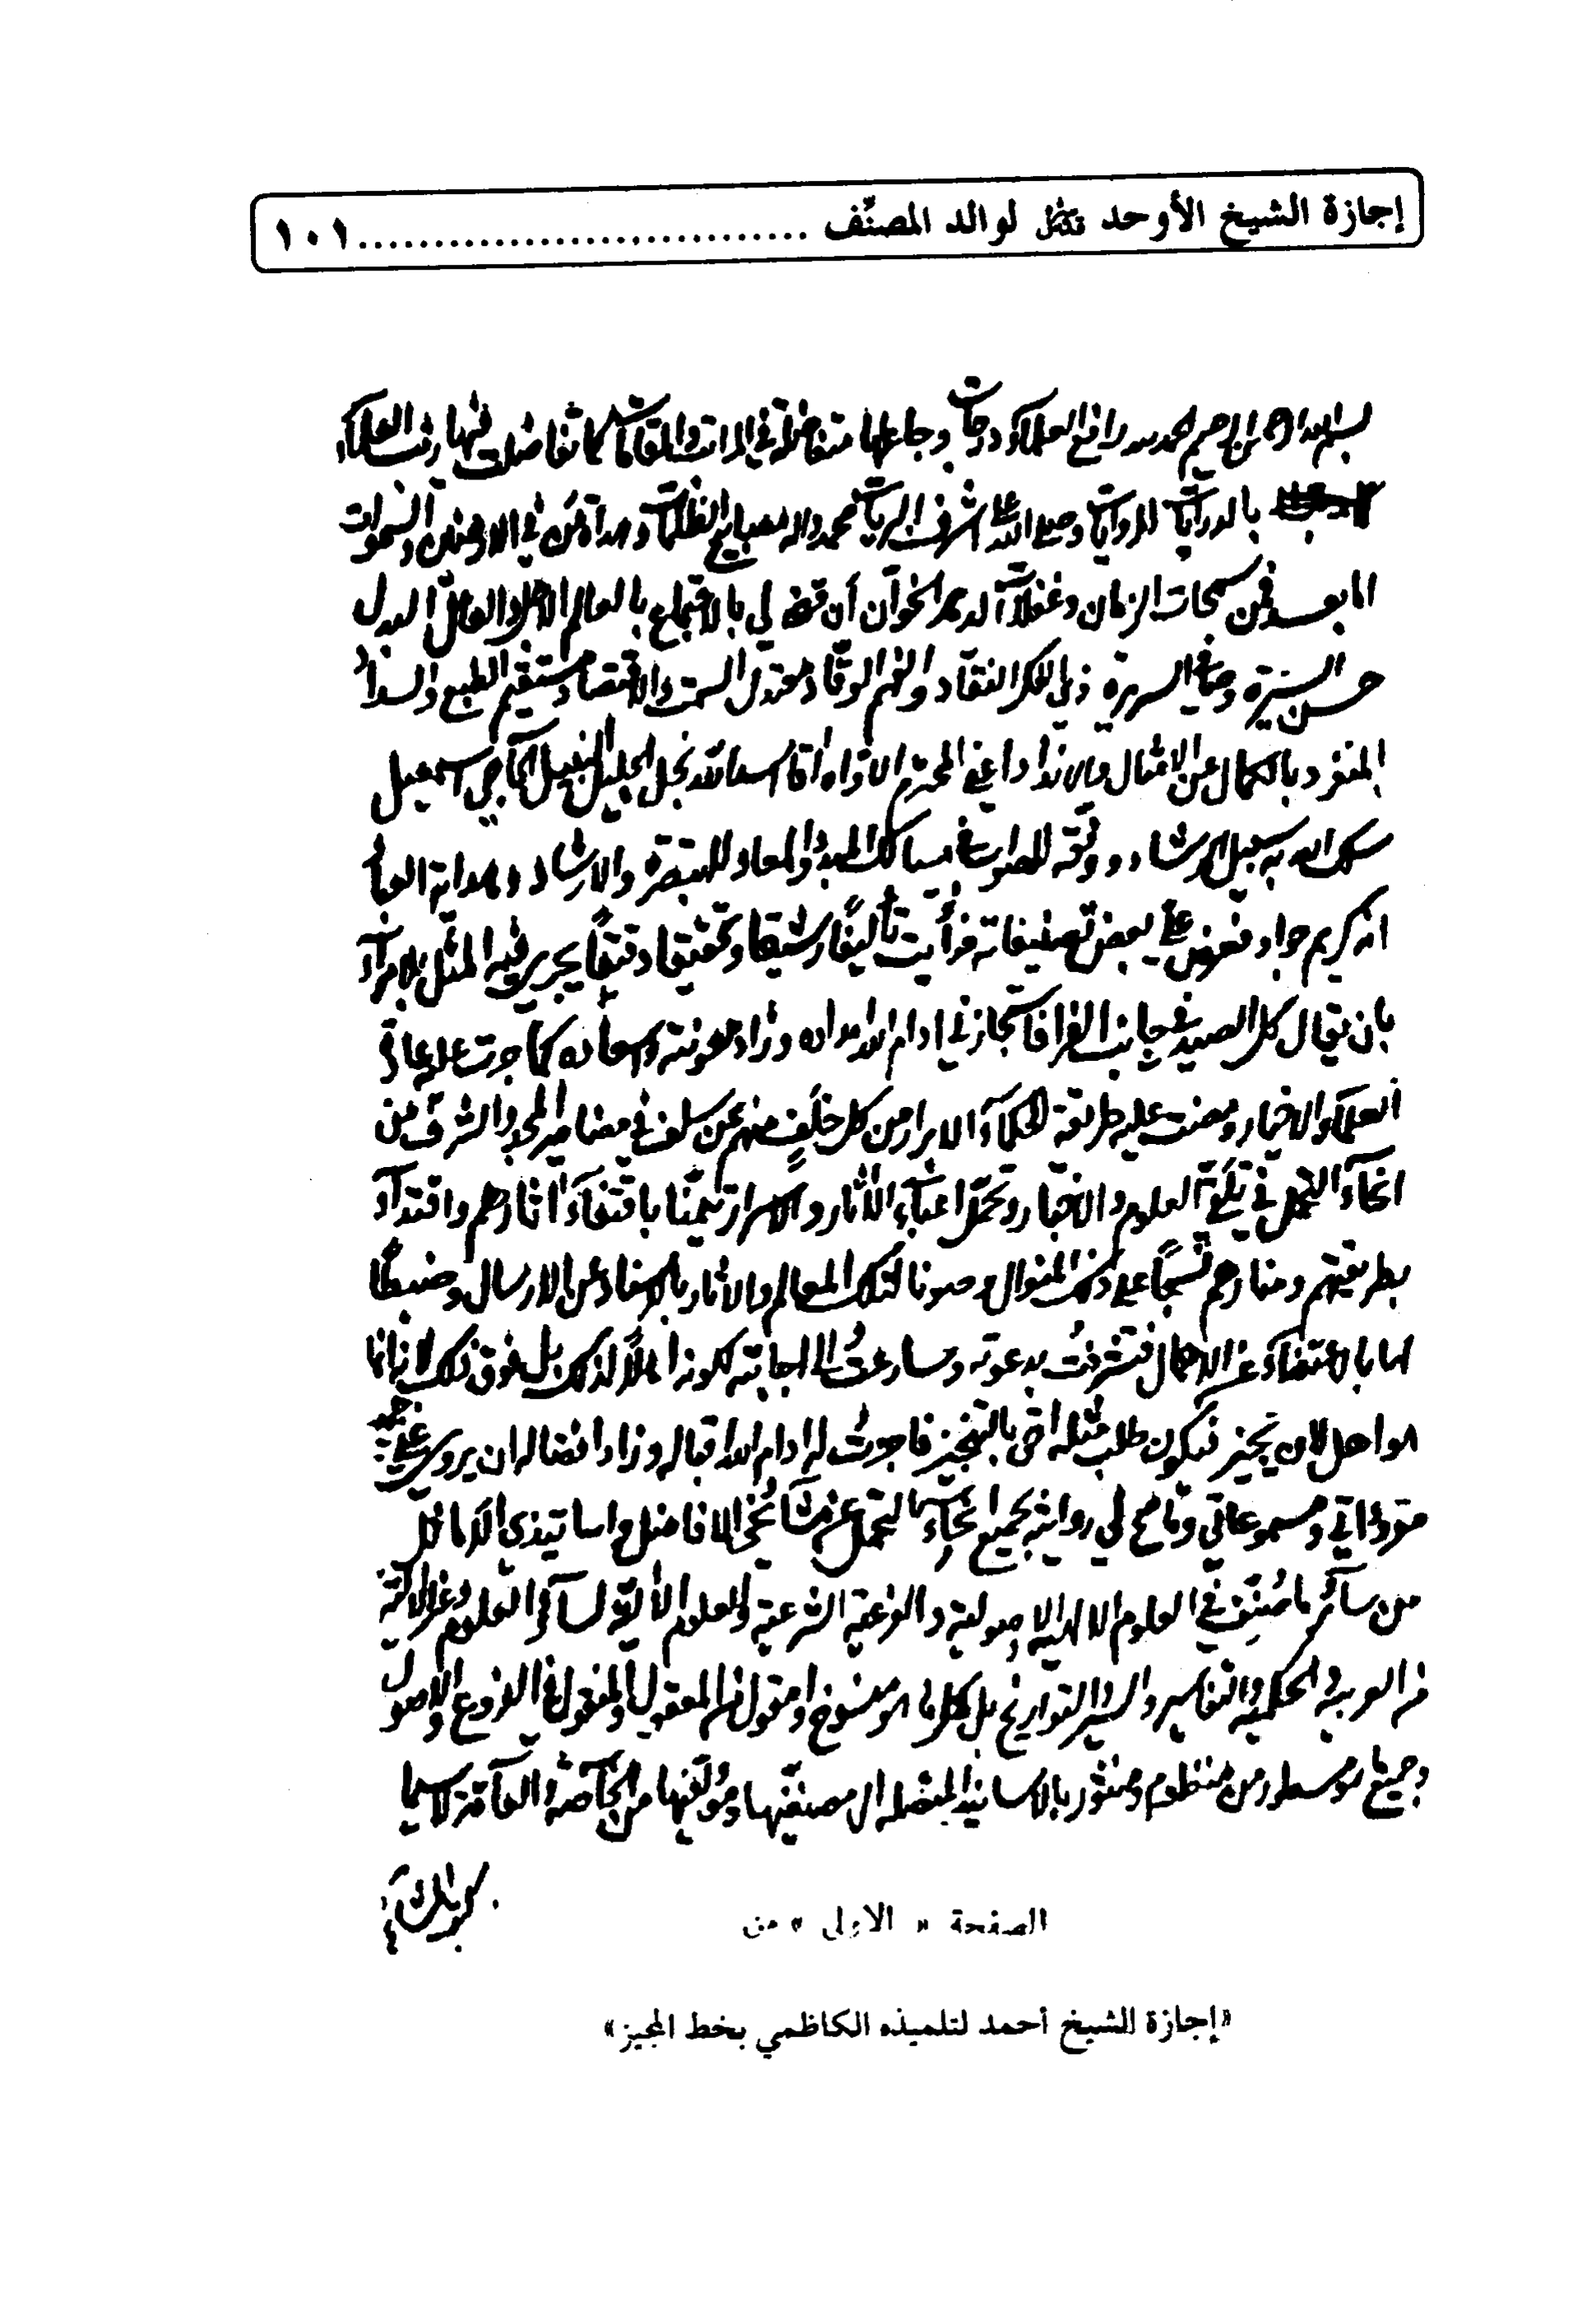 إجازة الشيخ الأوحد قدس لوالد المصنّف .............................. ١٠١
بسم الله الرحمن الرحيم الحمد لله رافع العلماء درجات وجاعلها متفاضلة في المراتب والمقامات كما تفاضلت فيها رتب العلماء
بالدرايات للروايات وصلى الله على اشرف البريات محمد واله مصابيح الظلمات وهداة من في الارضين والسموات
اما بعد فمن سمحات الزمان وغفلات الدهر الخوّان أن قضى لي بالاجتماع بالعالم العامل والفاضل
حسن السيرة وصافي السريرة ذي الفكر النقاد والفهم الوقّاد معتدل السمت والاقتصاد مستقيم الطبع والسداد
المنفرد بالكمال عن الامثال والانداد اعني المحترم الاوّاه اقا اسد الله نجل الجليل النبيل الحاجي اسمعيل
سلك الله به سبيل الرشاد ووفّقه للصواب في مسالك المبدأ والمعاد للتبصرة والارشاد وهداية العباد
انه كريم جواد فعرض عليّ بعض تصنيفاته فرأيت تأليفًا رشيقا وتحقيقا دقيقًا يجري فيه المثل بلا مراء
بان يقال كل الصيد في جانب الفرا فاستجازني ادام الله امداده وزاد معونته واسعاده كما جرت عليه عادة
العلماء الاخيار ومضت عليه طريقة الحكماء الابرار من كل خلَفٍ منهم عن سلف في مضامير المجد والشرف من
انحاء التحمل في تلقّي العلوم والاخبار وتحمّل اعباء الآثار والاسرار تيمّنًا باقتفاء اثارهم واقتداء
بطريقتهم ومنارهم نسجًا على ذلك المنوال وصونا لتلك المعالم والاثار بالاسناد عن الارسال وضبطًا
لها بالاعتضاد عن الاهمال فتشرفتُ بدعوته وسارعتُ الى اجابته لكونه اهلًا لذلك بل فوق ذلك لانه انما
هو اهل لان يجيز فيكون طلب مثله احق بالتنجيز فاجزت له ادام الله اقباله وزاد افضاله ان يروي عني جميع
مقرؤاتي ومسموعاتي وما صح لي روايته بجميع انحاء التحمل عن مشائخي الافاضل واساتيذي الاماثل
من سائر ما صُنّف في العلوم الالهية الاصولية والفرعية الشرعية والعلوم الآلية لسائر العلوم
من العربية والحكمية والتفاسير والسير والتواريخ بل كل ما هو منسوخ او مقول من المعقول والمنقول في الفروع والاصول
وجميع ما هو مسطور من منظوم ومنثور بالاسانيد المتصلة الى مصنفيها ومؤلفيها من الخاصة والعامة لاسيما
الصفحة « الاولى » من
«إجازة للشيخ أحمد لتلميذه الكاظمي بخط المجيز»